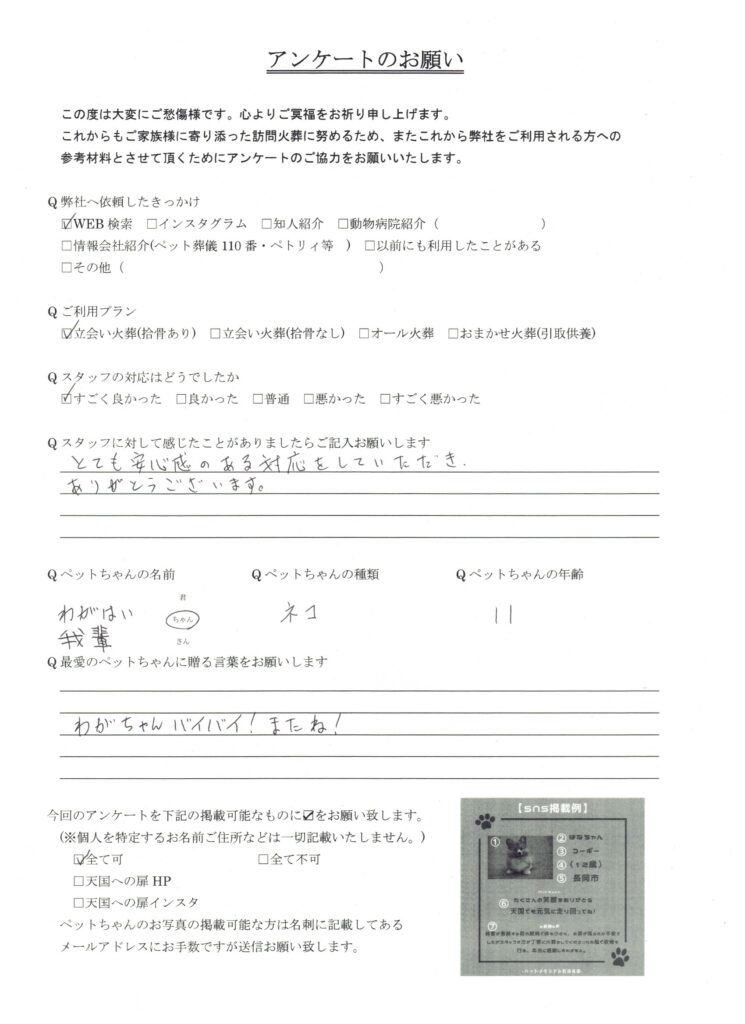 アンケートのお願い
この度は大変にご愁傷様です。心よりご冥福をお祈り申し上げます。
これからもご家族様に寄り添った訪問火葬に努めるため、またこれから弊社をご利用される方への
参考材料とさせて頂くためにアンケートのご協力をお願いいたします。
Q 弊社へ依頼したきっかけ
☑WEB 検索 □インスタグラム □知人紹介 □動物病院紹介（ ）
□情報会社紹介(ペット葬儀 110 番・ペトリィ等 ) □以前にも利用したことがある
□その他（ ）
Q ご利用プラン
☑立会い火葬(拾骨あり) □立会い火葬(拾骨なし) □オール火葬 □おまかせ火葬(引取供養)
Q スタッフの対応はどうでしたか
☑すごく良かった □良かった □普通 □悪かった □すごく悪かった
Q スタッフに対して感じたことがありましたらご記入お願いします
とても安心感のある対応をしていただき.
ありがとうございます。
Q ペットちゃんの名前 Q ペットちゃんの種類 Q ペットちゃんの年齢
君
わがはい ちゃん ネコ 11
我輩 さん
Q 最愛のペットちゃんに贈る言葉をお願いします
わがちゃんバイバイ！またね！
今回のアンケートを下記の掲載可能なものに☑をお願い致します。
(※個人を特定するお名前ご住所などは一切記載いたしません。)
☑全て可 □全て不可
□天国への扉 HP
□天国への扉インスタ
ペットちゃんのお写真の掲載可能な方は名刺に記載してある
メールアドレスにお手数ですが送信お願い致します。
【sns掲載例】
①
② はなちゃん
③ コーギー
④ (12歳)
⑤ 長岡市
⑥ たくさんの笑顔をありがとう
天国でも元気に走り回ってね!
⑦